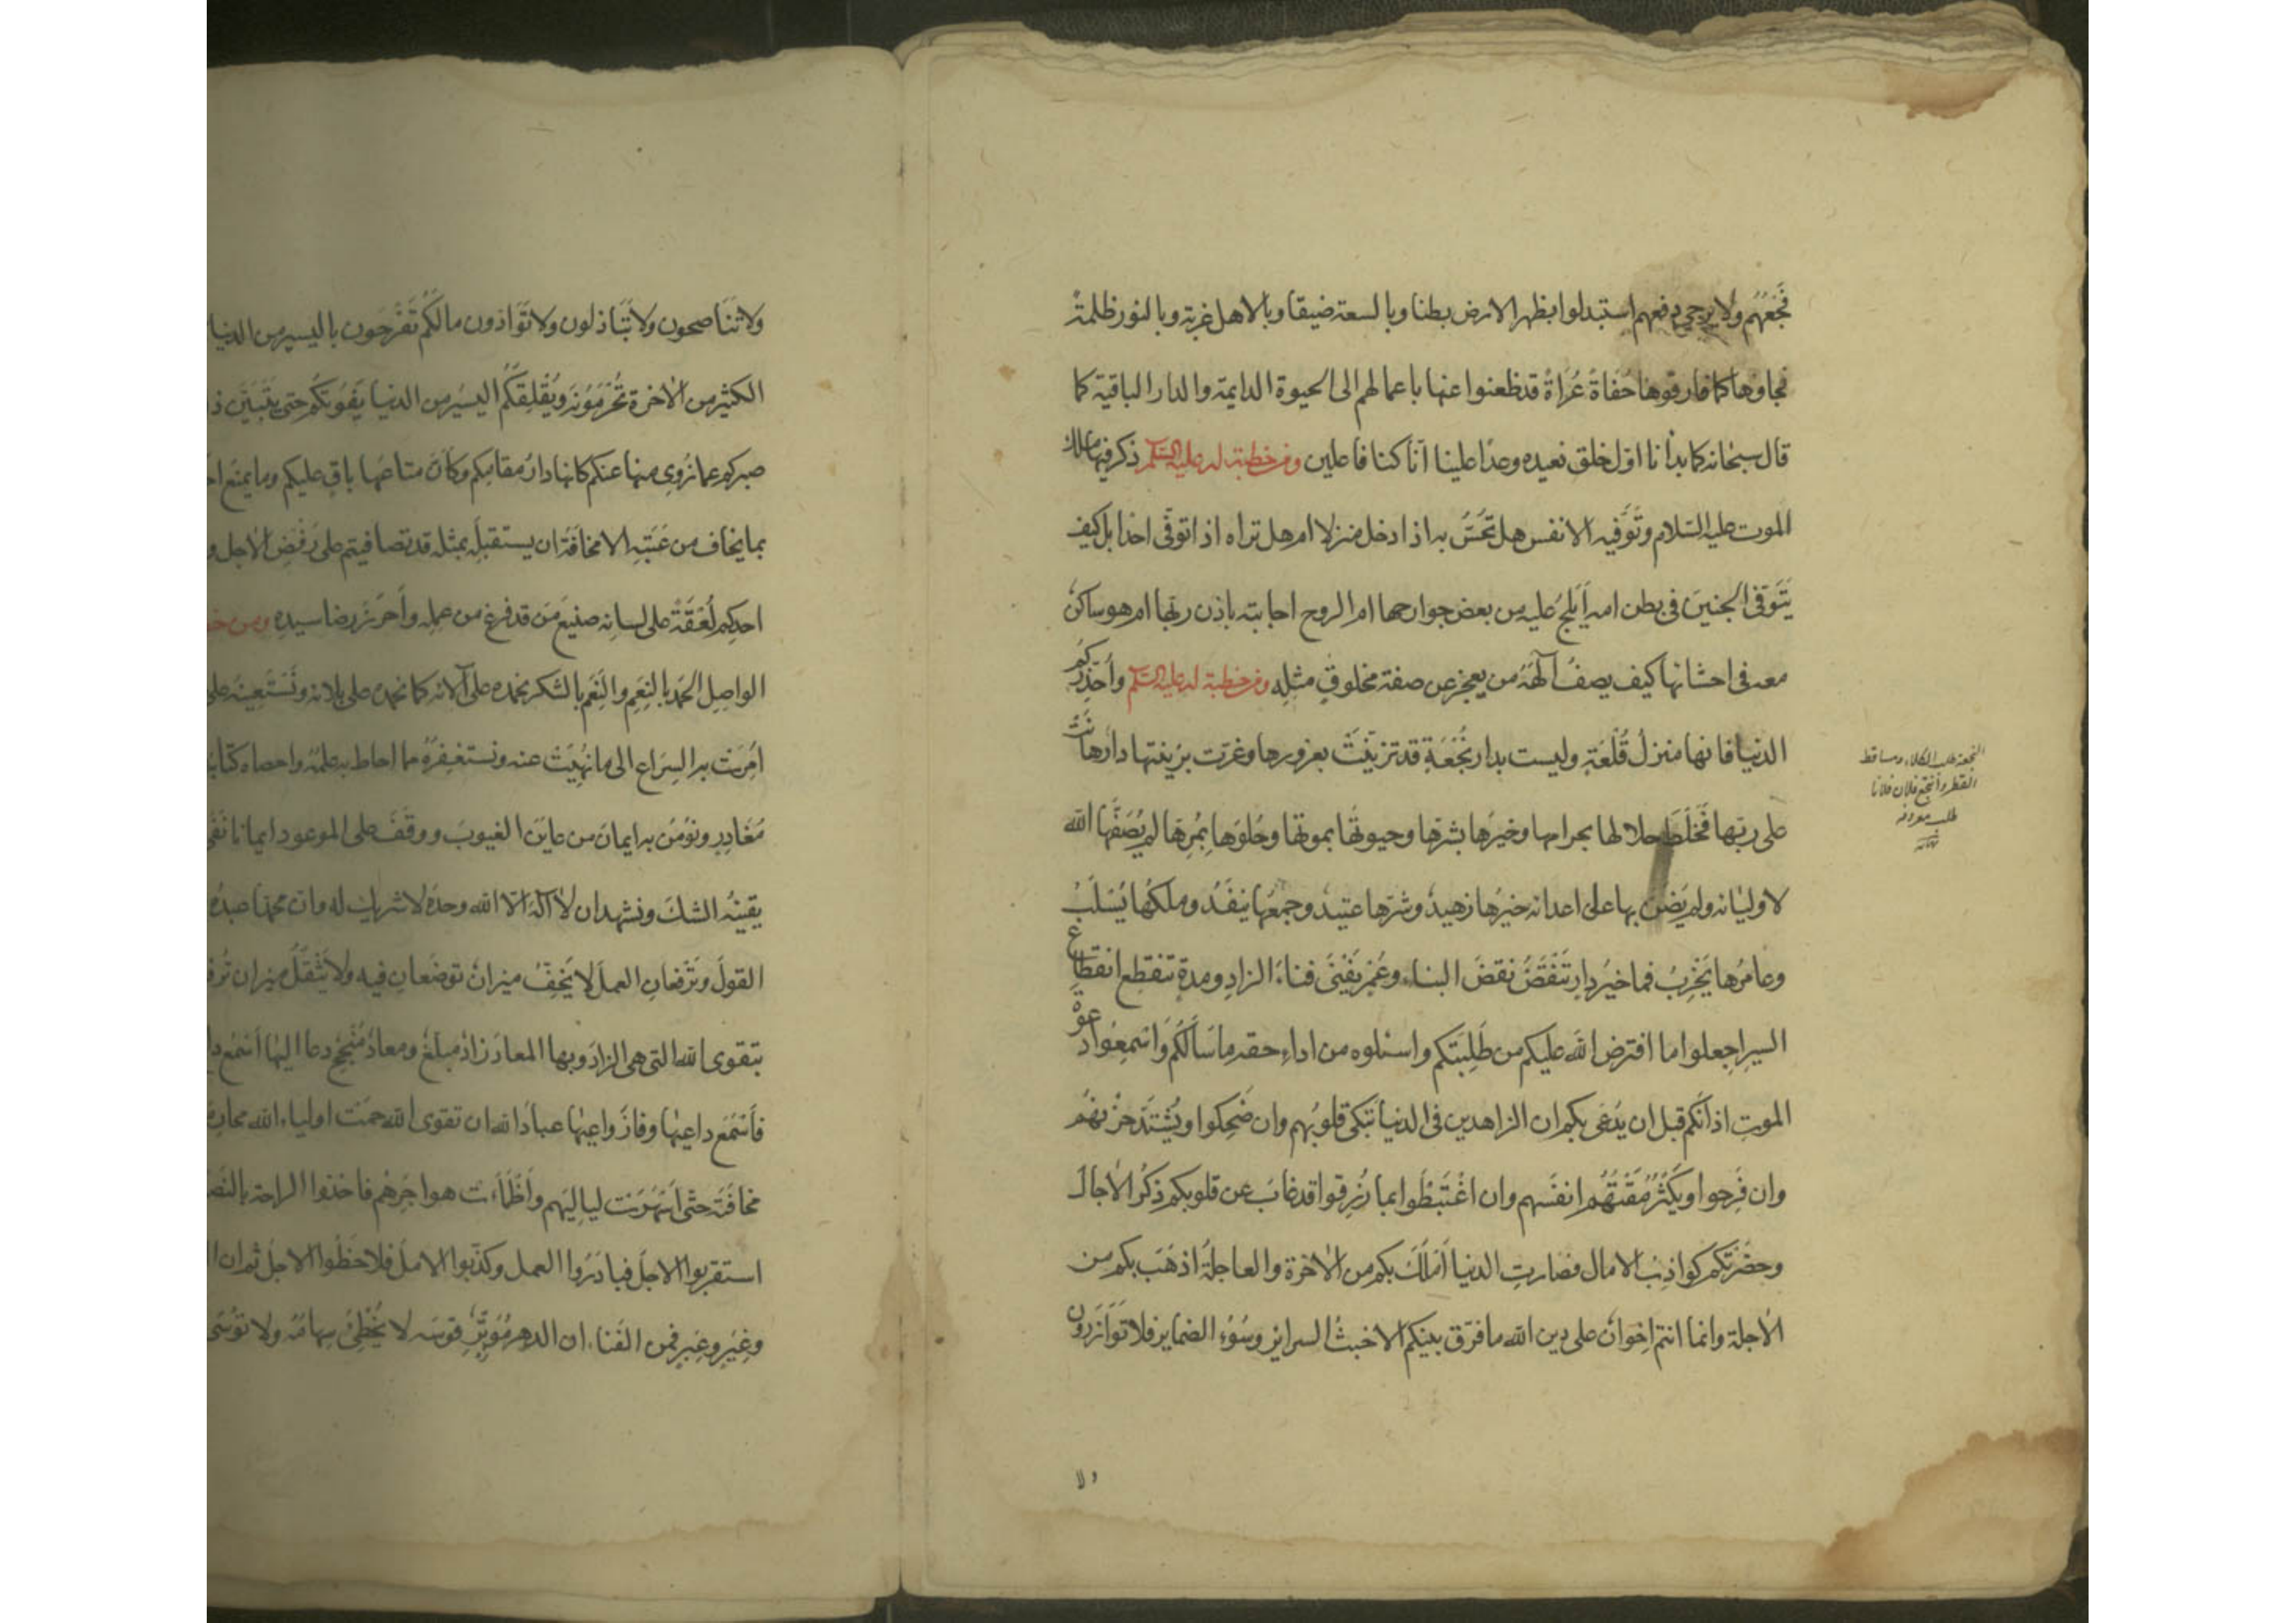 فَجْعُهُم ولا يرجى دفعهم استبدلوا بظهر الارض بطنا وبالسعة ضيقا وبالاهل غربة وبالنور ظلمةً
فجاوها كما فارقوها حُفَاةً عُرَاةً قد ظعنوا عنها باعمالهم الى الحيوة الدايمة والدار الباقية كما
قال سبحانه كما بدأنا اوّل خلق نعيده وعدًا علينا انّا كنا فاعلين ومن خطبة له عليه السّلم ذكر فيها ملك
الموت عليه السّلام وتَوَفّيه الانفس هل تحَسُّ به اذا دخل منزلا ام هل تراه اذا توفّى احدا بل كيف
يَتَوفّى الجنينَ فى بطن امه أيَلجُ عليه من بعض جوارحها ام الروح اجابته باذن ربّها ام هو ساكن
معه فى احشائها كيف يصفُ آلهَهُ من يعجز عن صفة مخلوقٍ مثلِه ومن خطبة له عليه السّلم وأُحَذِّركُم
الدنيا فانها منزلُ قُلْعَةٍ وليست بدار نُجْعَةٍ قد تزيّنَتْ بغرورها وغرّت بزينتها دارٌ هانَتْ
على ربّها فَخَلَطَ حلالها بحرامها وخيرَها بشرّها وحيوتَها بموتها وحُلوَها بمُرِّها لم يُصَفِّها الله
لاوليائه ولم يَضُنَّ بها على اعدائه خيرُها زهيدٌ وشرّها عتيدٌ وجمعُها ينفَدُ وملكُها يُسْلَبُ
وعامرُها يَخْرِبُ فما خيرُ دارٍ تَنْقَضُّ نقضَ البناء وعُمرٍ يَفْنَى فناءَ الزادِ ومدةٍ تنقطع انقطاع
السيرِ اجعلوا ما افترض الله عليكم من طَلِبَتكم واسئلوه من اداءِ حقه ما سَألَكُم وَاسْمِعُوا دعوة
الموتِ اذانَكم قبل ان يُدْعَى بكم ان الزاهدين فى الدنيا تبكى قلوبُهم وان ضَحِكوا ويَشْتَدُّ حزنُهُم
وان فَرِحوا ويَكْثُرُ مَقْتُهُم انفسَهم وان اغْتَبَطُوا بما رُزِقوا قد غابَ عن قلوبكم ذِكْرُ الاٰجال
وحضَرَتْكم كواذِبُ الامال فصارتِ الدنيا أمْلَكَ بكم من الاٰخرة والعاجلةُ اذهَبَ بكم من
الاٰجلة وانما انتم اخوانٌ على دين الله ما فرّق بينكم الا خبثُ السرائر وسُوْءُ الضماير فلا تَوَازَرون
ولا
النجعة طلب الكلاء ومساقط
القطر وانتجع فلان فلانا
طلب معروفه
ولا تَنَاصحون ولا تَبَاذلون ولا تَوَادّون ما لكم تَفْرَحون باليسير من الدنيا
الكثير من الاٰخرة تُحْرَمُوْنَه ويُقْلِقُكُم اليسُير من الدنيا يَفُوتُكم حتى يتَبَيّنَ ذ
صبركم عما زُوِى منها عنكم كانها دارُ مقامِكم وكأنَّ متاعَها باقٍ عليكم وما يمنع ا
بما يخاف من عَيْبِهِ الا مخافَةُ ان يستقبلَه بمثله قد تصافيتم على رَفْضِ الاٰجل و
احدِكم لُعْقَةً على لسانِه صنيعَ مَن قد فرغ من عمله وأحرَزَ رضا سيدِه ومن خ
الواصِلِ الحمدَ بالنِعَمِ والنِعَمَ بالشكر نحمَده على آلائه كما نحمده على بلائه ونَسْتَعِينُه على
اُمِرَتْ به السِرَاعِ الى ما نُهِيَتْ عنه ونستغفِرُهُ مما احاط به علمُه واحصاه كتابُ
مُغَادِرٍ ونُؤمِنُ به ايمانَ من عاينَ الغيوبَ ووقَفَ على الموعود ايمانا نَفَى
يقينُه الشكَ ونشهد ان لا آلهَ الا الله وحدَه لا شريك له وان محمدا عبدُه
القولَ وتَرْفَعانِ العملَ لا يَخِفُّ ميزانٌ توضَعانِ فيه ولا يَثْقُلُ ميزان تُر
بتقوى الله التى هى الزادُ وبها المعاد زادٌ مبلّغٌ ومعادٌ مُنْجِحٌ دعا اليها أسْمَعُ د
فأسْمَعَ داعِيها وفازَ واعِيها عبادَ الله ان تقوى الله حمَت اولياءَ الله محار
مخافَتَه حتى اَسْهَرَتْ ليالِيَهم وأظْمَأَتْ هواجِرَهم فاخذوا الراحة بالنَصَ
استقربوا الاجلَ فبادَرُوا العمل وكذّبوا الاملَ فلاحَظُوا الاجل ثم ان ا
وغِيَرٍ وعِبَرٍ فمن الفَناء ان الدهر مُوْتِرٌ قوسَه لا تُخْطِئُ سِهامُه ولا توسَى